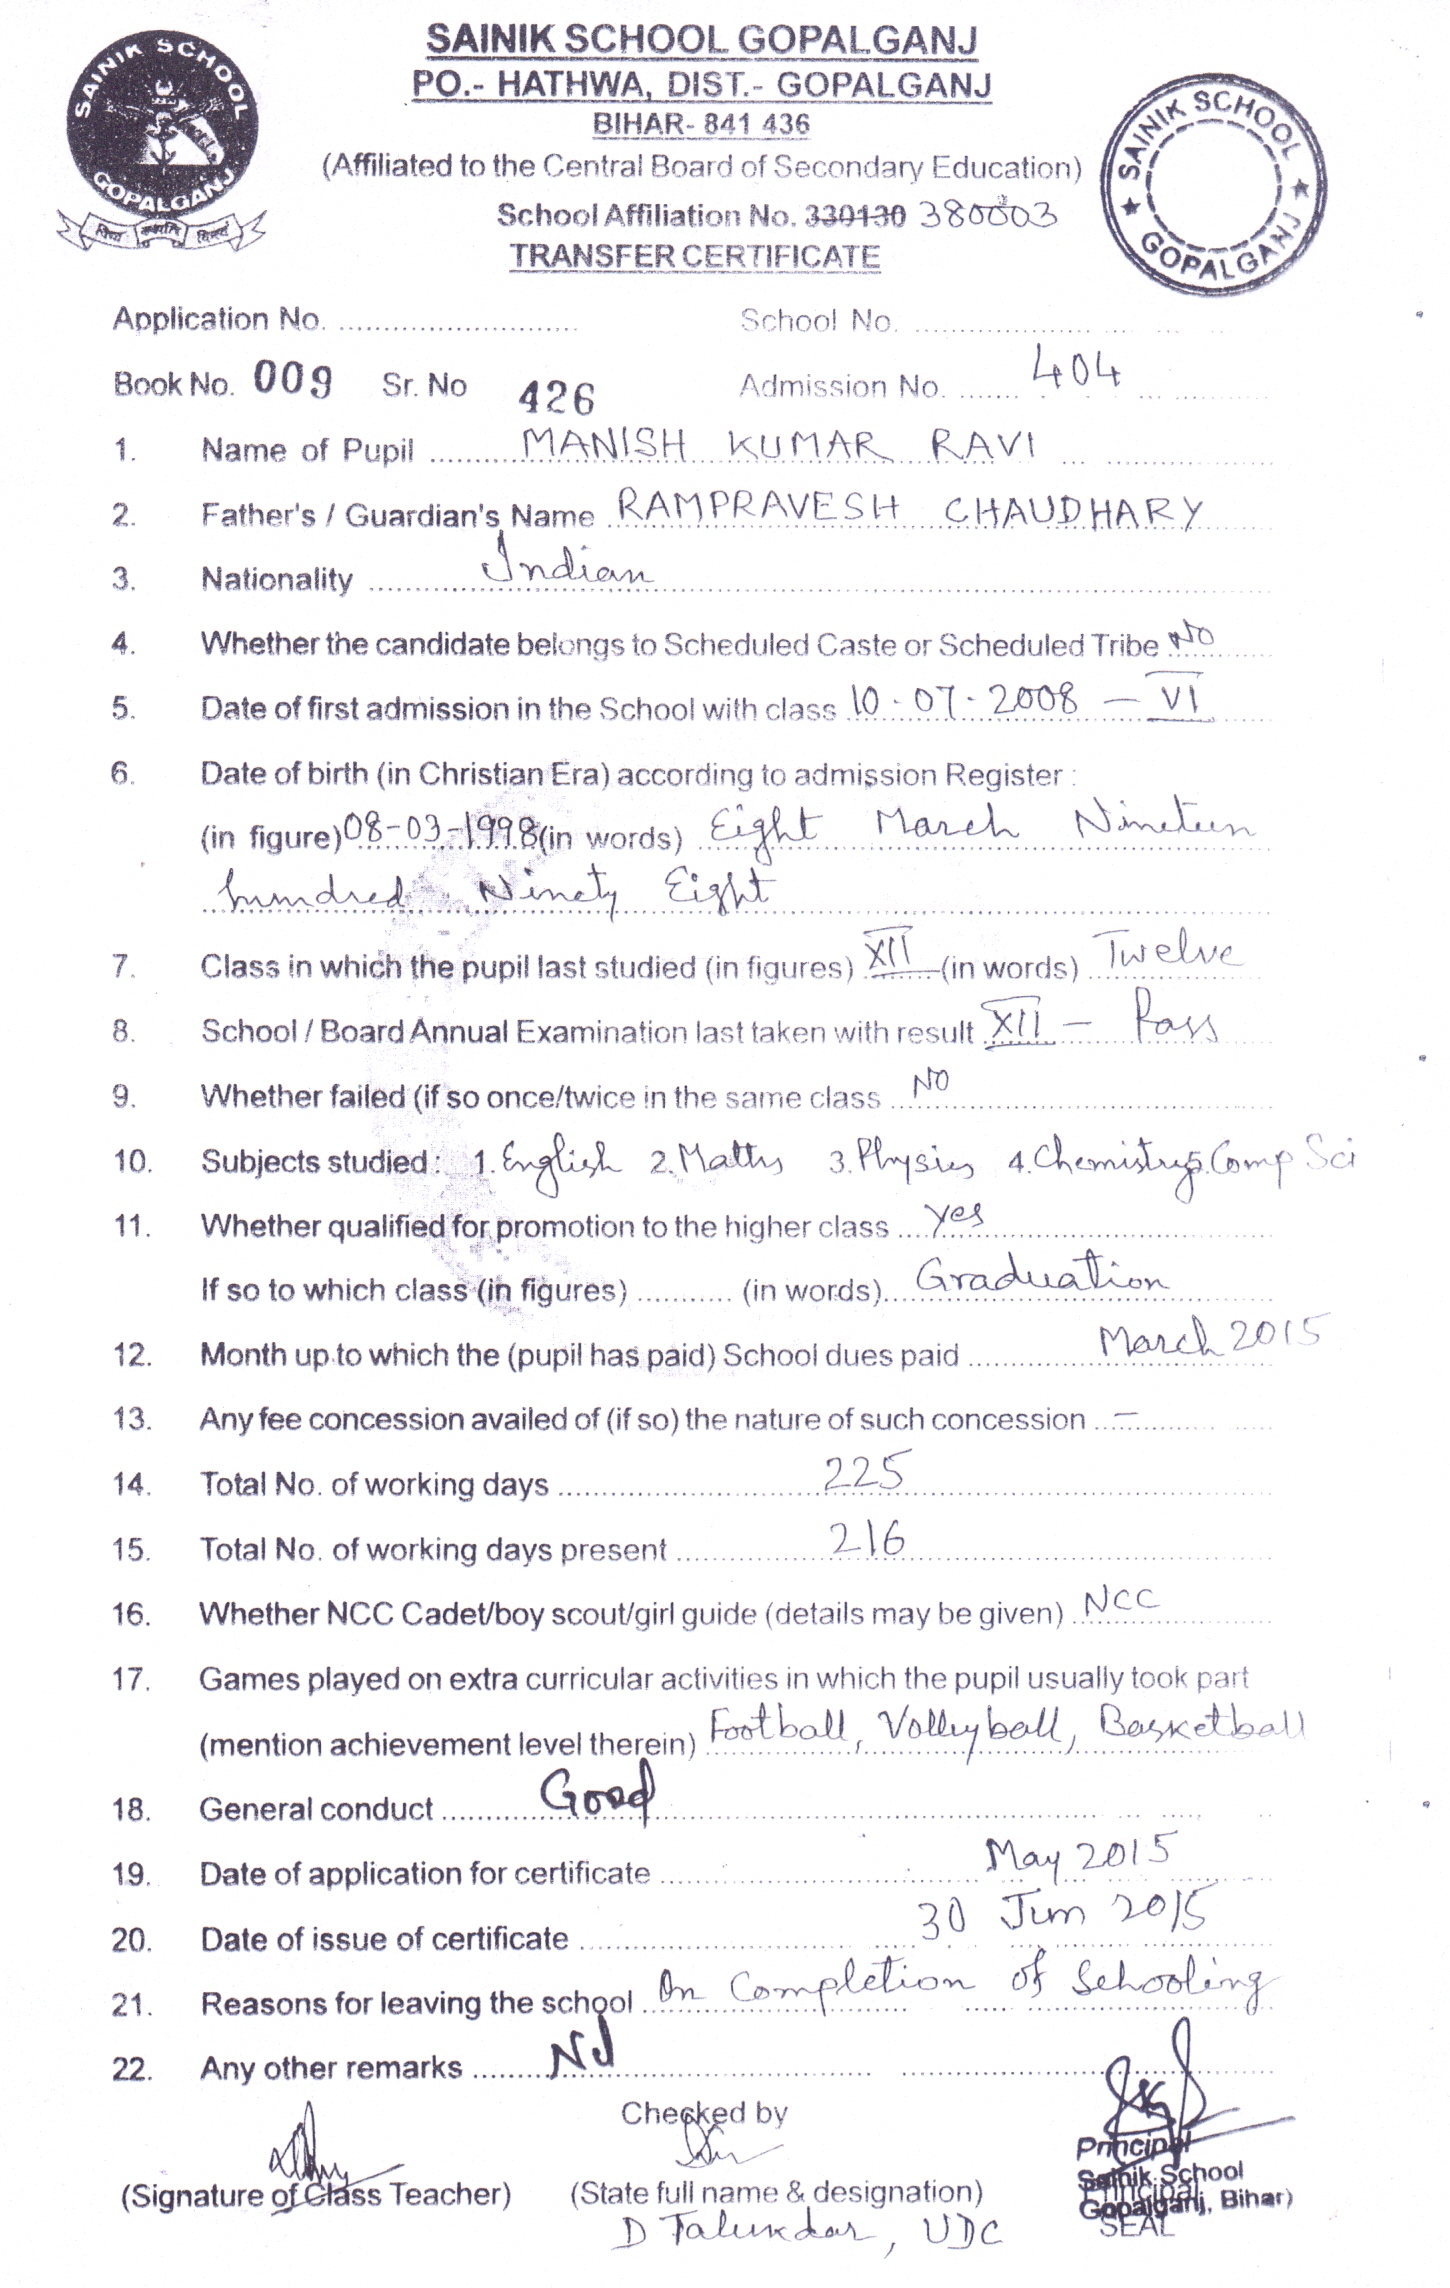 SAINIK SCHOOL GOPALGANJ
PO.- HATHWA, DIST.- GOPALGANJ
BIHAR- 841 436
(Affiliated to the Central Board of Secondary Education)
School Affiliation No. 330130 380003
TRANSFER CERTIFICATE
SAINIK SCHOOL
GOPALGANJ
SAINIK SCHOOL
GOPALGANJ
Application No. School No.
Book No. 009 Sr. No 426 Admission No. 404
1. Name of Pupil MANISH KUMAR RAVI
2. Father's / Guardian's Name RAMPRAVESH CHAUDHARY
3. Nationality Indian
4. Whether the candidate belongs to Scheduled Caste or Scheduled Tribe NO
5. Date of first admission in the School with class 10-07-2008 – VI
6. Date of birth (in Christian Era) according to admission Register :
(in figure) 08-03-1998 (in words) Eight March Nineteen
hundred Ninety Eight
7. Class in which the pupil last studied (in figures) XII (in words) Twelve
8. School / Board Annual Examination last taken with result XII – Pass
9. Whether failed (if so once/twice in the same class NO
10. Subjects studied : 1. English 2. Maths 3. Physics 4. Chemistry 5. Comp Sci
11. Whether qualified for promotion to the higher class yes
If so to which class (in figures) (in words) Graduation
12. Month up to which the (pupil has paid) School dues paid March 2015
13. Any fee concession availed of (if so) the nature of such concession –
14. Total No. of working days 225
15. Total No. of working days present 216
16. Whether NCC Cadet/boy scout/girl guide (details may be given) NCC
17. Games played on extra curricular activities in which the pupil usually took part
(mention achievement level therein) Football, Volleyball, Basketball
18. General conduct Good
19. Date of application for certificate May 2015
20. Date of issue of certificate 30 Jun 2015
21. Reasons for leaving the school On Completion of Schooling
22. Any other remarks
Checked by
(Signature of Class Teacher) (State full name & designation)
D Talukdar, UDC
Principal
Sainik School
Gopalganj, Bihar)
Principal
SEAL